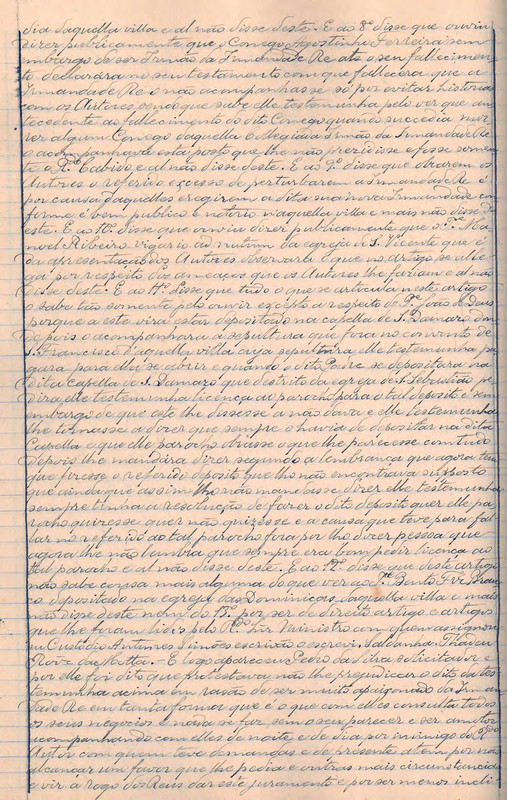 dia daquella villa e al não disse deste. E ao 8º disse que ouviu
dizer publicamente que o Conego Agostinho Ferreira sem
embargo de ser Irmão da Irmandade Re ate o seu fallecimen-
to declarára no seu testamento com que fallecera que a
Irmandade Re o não acompanhasse só por evitar historias
com os Autores sendo que sabe elle testemunha pelo ver que an-
tecedente ao fallecimento do dito Conego quando succedia mor-
rer algum Conego daquella Collegiada Irmão da Irmandade Re
o acompanhava esta posto que lhe não prezidisse e fosse somen-
te o Rdo. Cabido e al não disse deste. E ao 9º disse que obrarem os
Autores o referido excesso de perturbarem a Irmandade Re é
por causa daquelles eregirem a dita sua nova Irmandade con-
forme é bem publico e notorio naquella villa e mais não disse d'
este. E ao 10º disse que ouviu dizer publicamente que o Pe. Ma-
noel Ribeiro vigario ad nutum da egreja de S. Vicente que é
da apresentação dos Autores observara o que no artigo se alle-
ga por respeito dos ameaços que os Autores lhe fariam e al não
disse deste. E ao 11º disse que tudo o que se articula neste artigo
o sabe tão somente pelo ouvir excepto a respeito do Pe. João
porque a este vira estar depositado na capella de S. Damazo don-
de depois o acompanhara á sepultura que fora no convento de
S. Francisco d'aquella villa cuja sepultura elle testemunha pa-
gara para ella se abrir e quando o dito Padre se depositara na
dita Capella de S. Damazo que destrito da egreja de S. Sebastião pe-
dira elle testemunha licença ao parocho para o tal deposito e sem
embargo de que este lhe dissesse a não dava e elle testemunha
lhe tornasse a dizer que sempre o havia de depositar na dita
Capella e que elle parocho obrasse o que lhe parecesse comtudo
depois lhe mandára dizer segundo a lembrança que agora tem
que fizesse o referido deposito que lho não encontrava supposto
que ainda que assim lho não mandasse dizer elle testemunha
sempre tinha a resolução de fazer o dito deposito quer elle pa-
rocho quizesse quer não quizesse e a causa que teve para fal-
lar no referido ao tal parocho fora por lho dizer pessoa que
agora lhe não lembra que sempre era bom pedir licença ao
tal parocho e al não disse deste. E ao 12º disse que deste artigo
não sabe cousa mais alguma do que ver ao Bento
depositado na egreja das Dominicas daquella villa e mais
não disse deste nem do 13º por ser de direito artigo e artigos
que lhe foram lidos pelo Rdo. Snr. Ministro com quem assignou
eu Custodio Antunes Simões escrivão o escrevi. Saldanha. Thadeu
da Motta. — E logo appareceu Pedro da Silva solicitador e
por elle foi dito que protestava não lhe prejudicar o dito da tes-
temunha acima em razão de ser muito apaixonado da Irman-
dade Re em tanta forma que é o que com elles consulta todos
os seus negocios e nada se faz sem o seu parecer e ser
acompanhando com elles de noite e de dia por inimigo do
Autor com quem teve demandas e de presente alem por não
alcançar um favor que lhe pedia e outras mais circunstancias
e vir a rogo dos Reus dar este juramento e por ser menos incli-